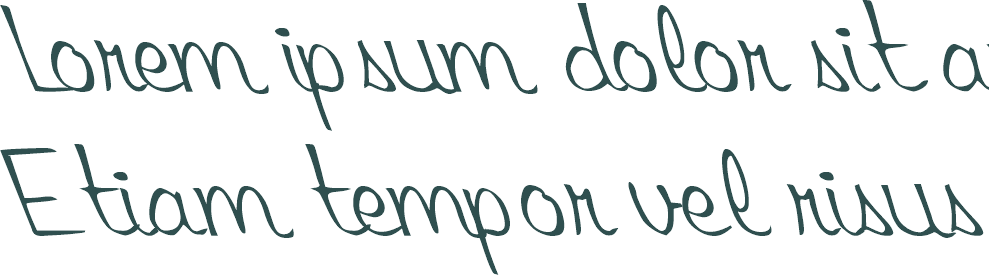 Lorem ipsum dolor sit a
Etiam tempor vel risus